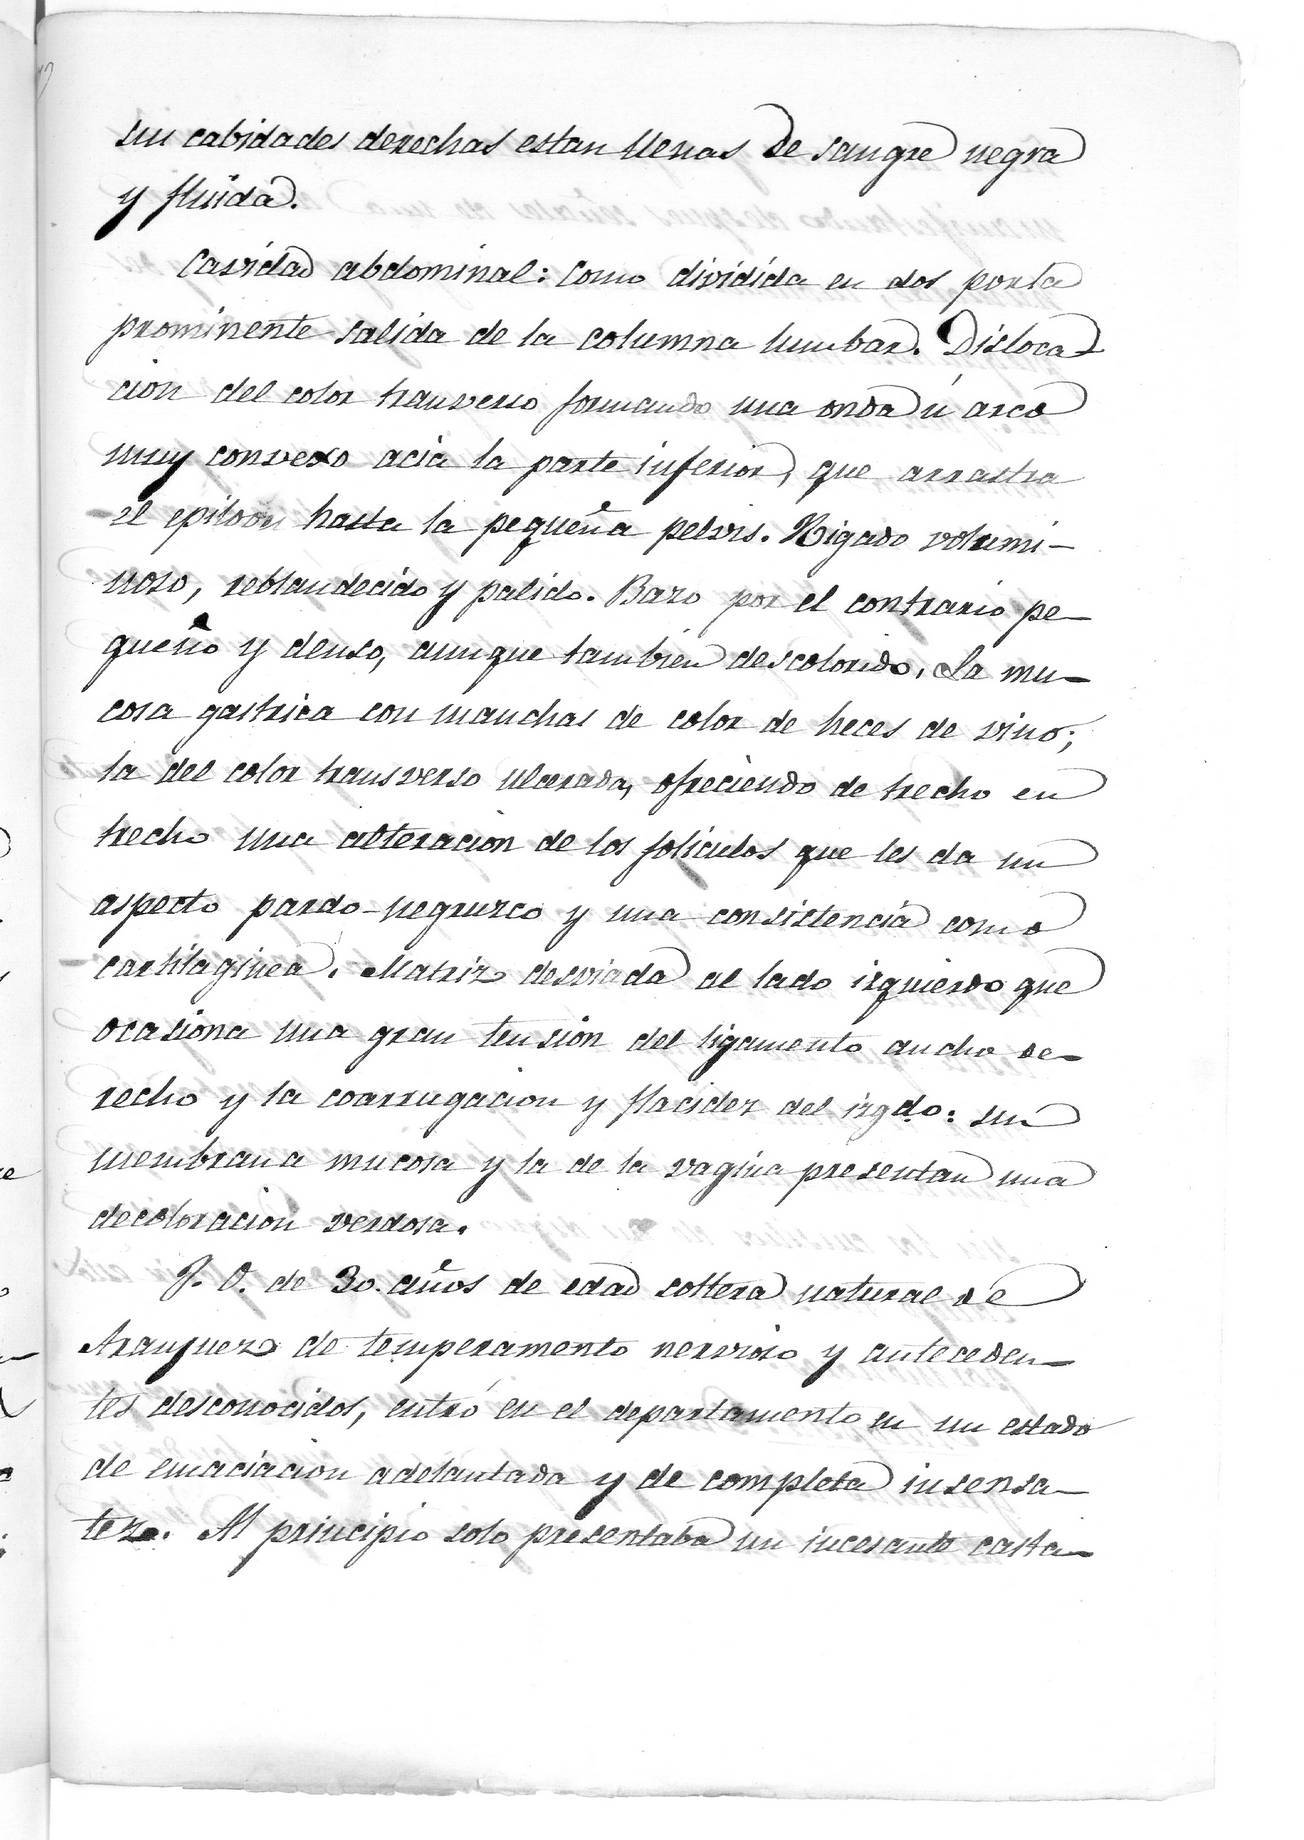 sus cabidades derechas estan llenas de sangre negra
y fluida.
Cavidad abdominal: Como dividida en dos por la
prominente salida de la columna lumbar. Disloca-
cion del color transverso formando una onda ú arco
muy convexo acia la parte inferior, que arrastra
el epiploon hasta la pequeña pelvis. Higado volumi-
noso, reblandecido y palido. Bazo por el contrario pe-
queño y denso, aunque tambien descolorido. La mu-
cosa gastrica con manchas de color de heces de vino;
la del color transverso ulcerada, ofreciendo de trecho en
trecho una alteracion de los foliculos que les da un
aspecto pardo-negruzco y una consistencia como
cartilaginea. Matriz desviada al lado izquierdo que
ocasiona una gran tension del ligamento ancho de-
recho y la coarrugacion y flacidez del izqdo: su
membrana mucosa y la de la vagina presentan una
decoloracion verdosa.
J. O. de 30. años de edad soltera natural de
Aranjuez de temperamento nervioso y anteceden-
tes desconocidos, entró en el departamento en un estado
de emaciacion adelantada y de completa insensa-
tez. Al principio solo presentaba un incesante casta-